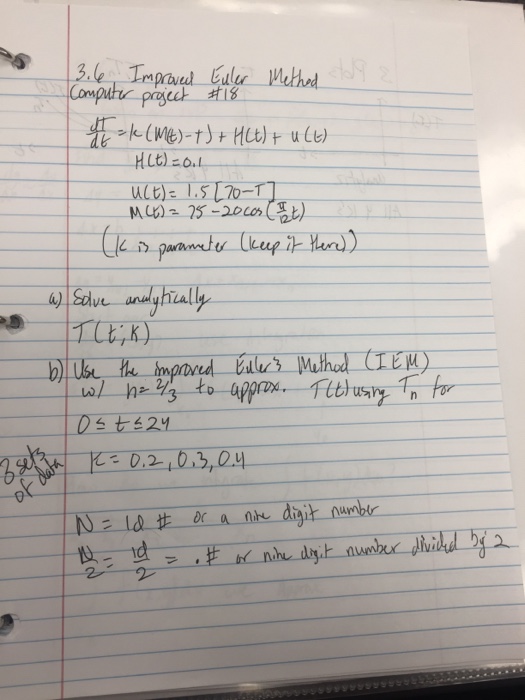 3.6 Improved Euler Method
Computer project #18
dT/dt = k(M(t)-T) + H(t) + u(t)
H(t) = 0.1
u(t) = 1.5[70-T]
M(t) = 75 - 20cos(π/12 t)
(K is parameter (keep it there))
a) Solve analytically
T(t; K)
b) Use the improved Euler's Method (IEM)
w/ h = 2/3 to approx. T(t) using Tn for
0 ≤ t ≤ 24
3 sets of data
K = 0.2, 0.3, 0.4
N = id # or a nine digit number
N/2 = id/2 = .# or nine digit number divided by 2